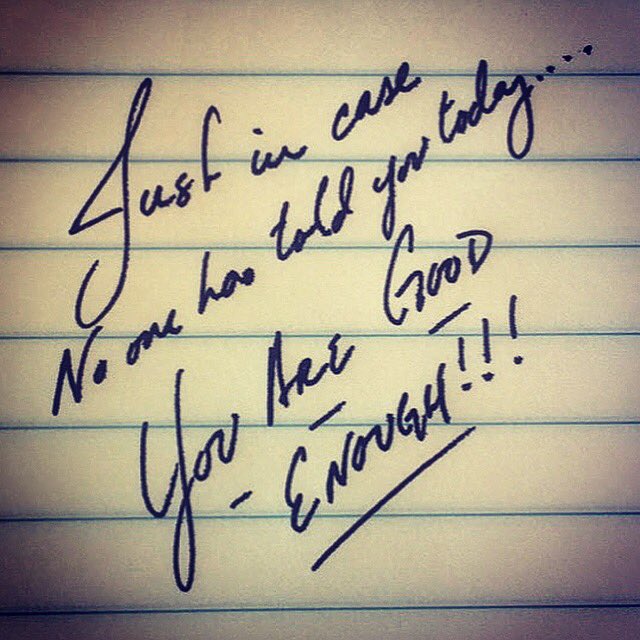 Just in case
No one has told you today....
YOU ARE GOOD
ENOUGH!!!